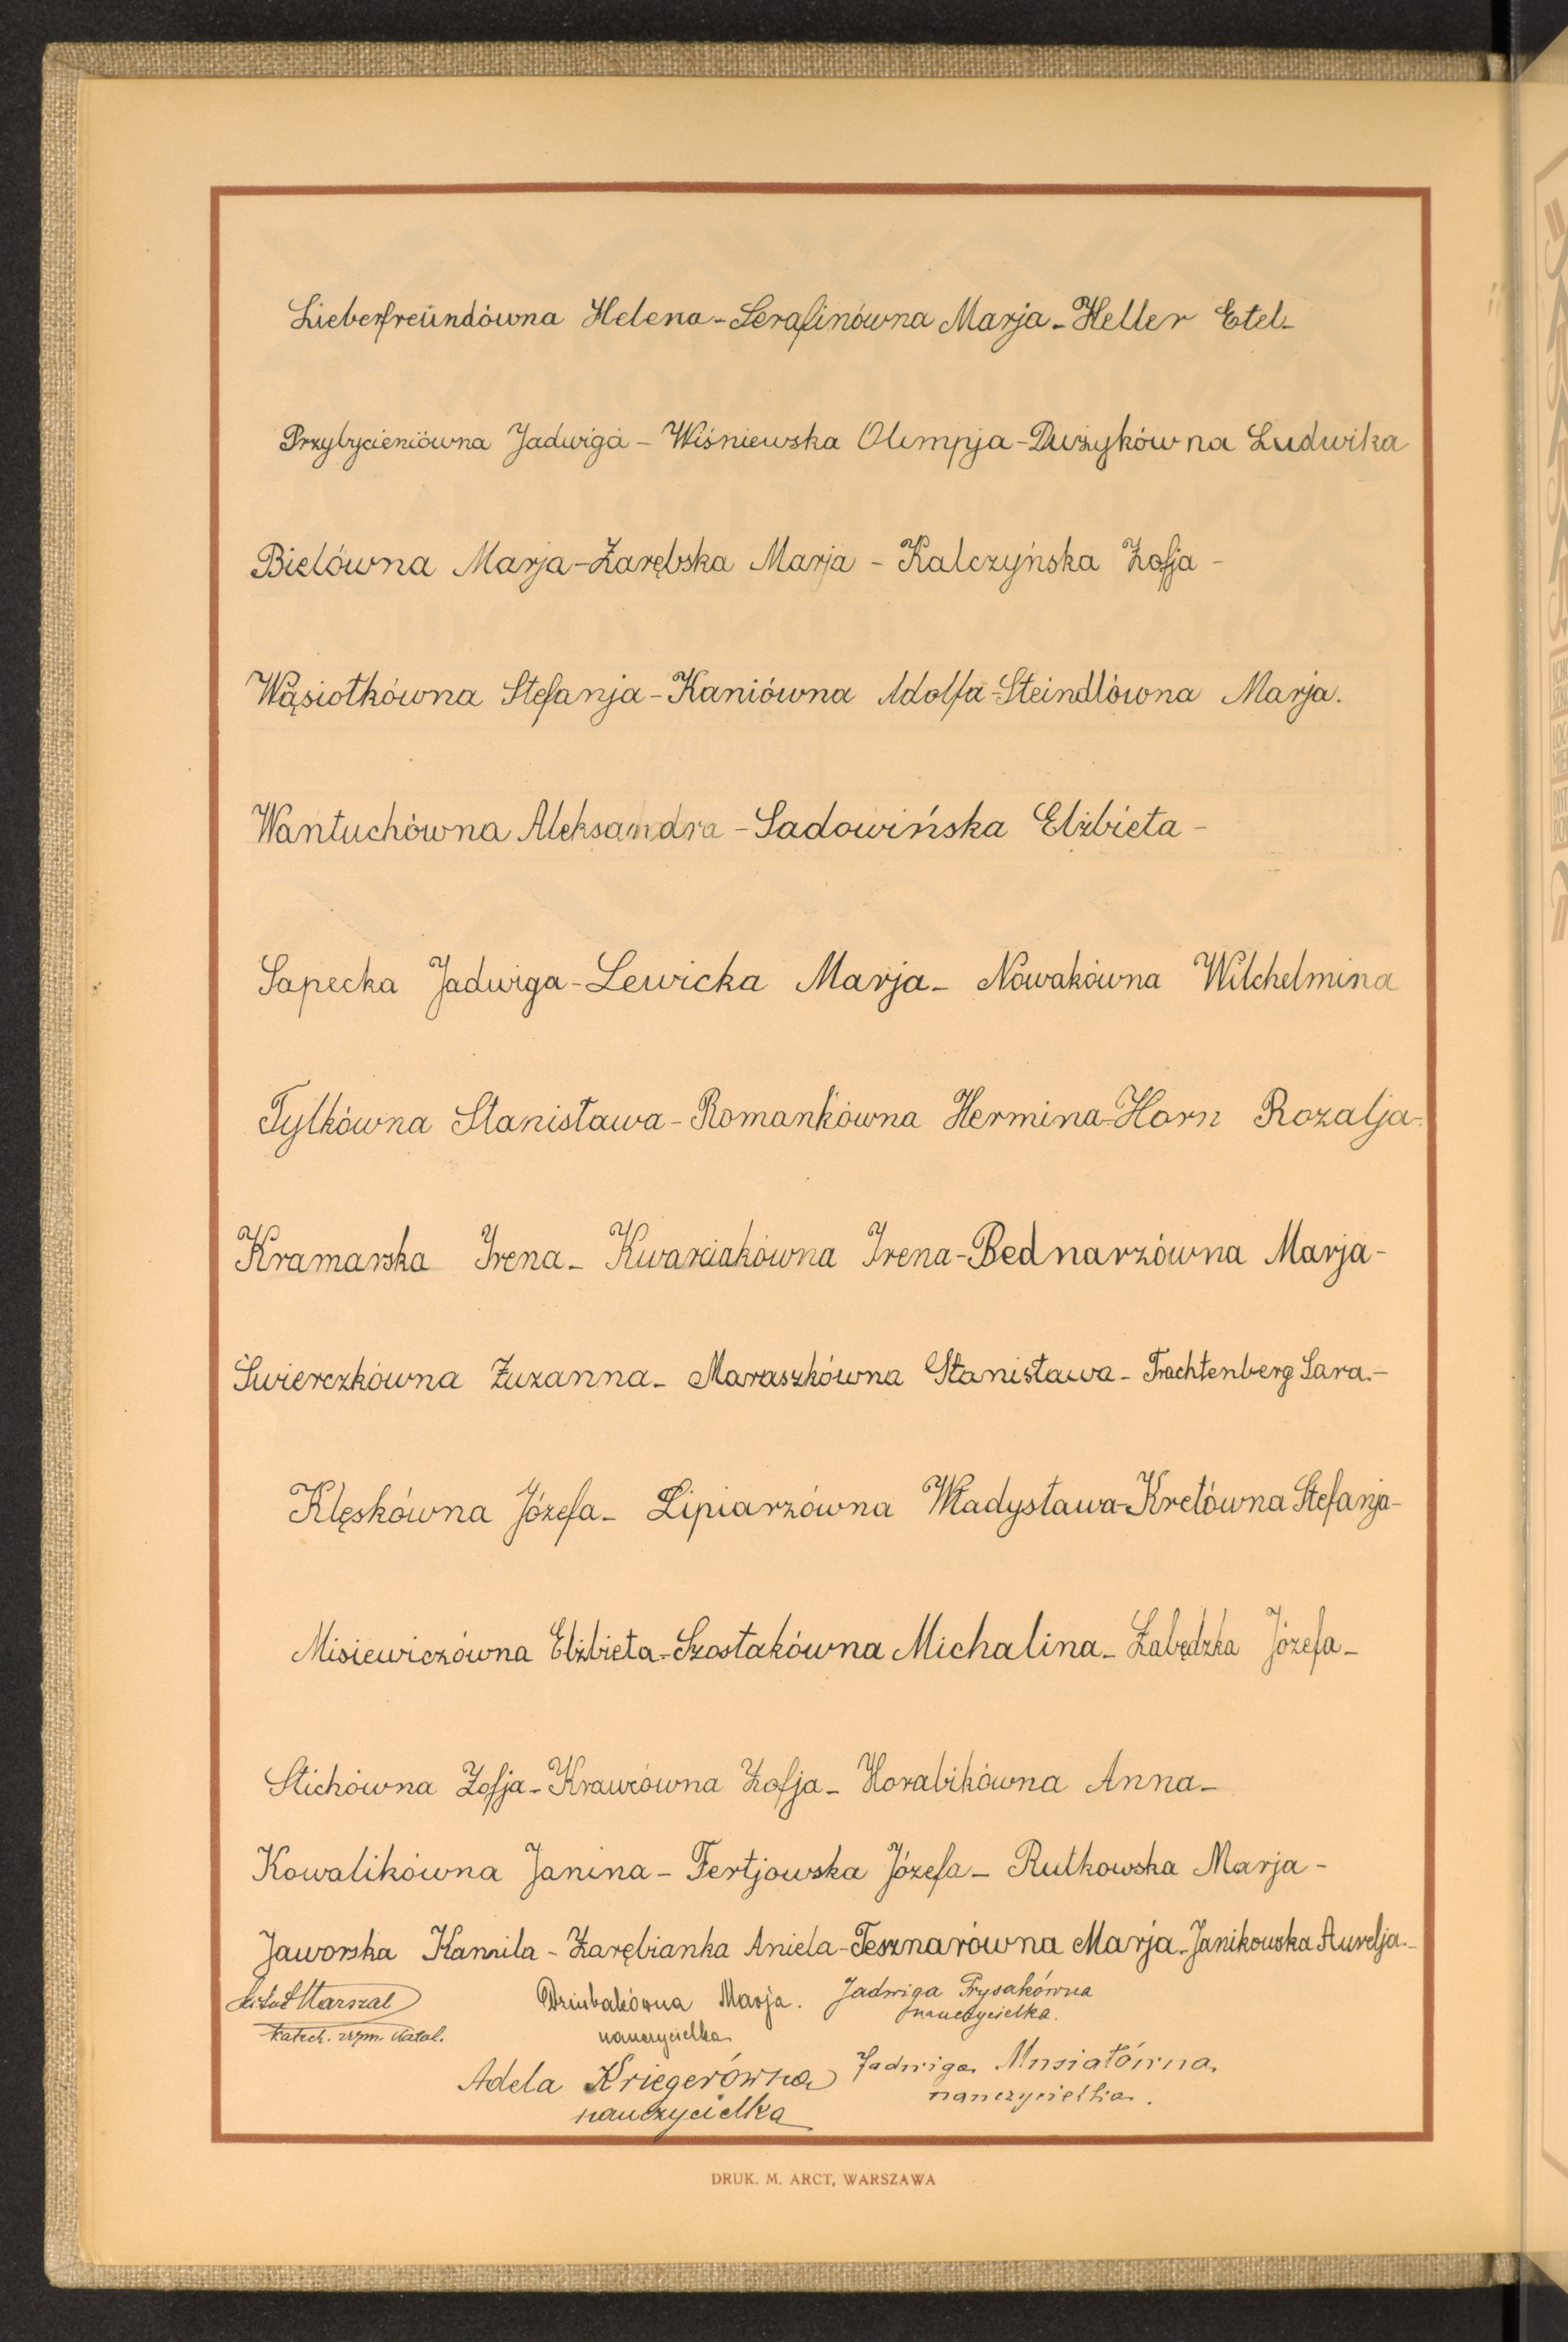 Lieberfreündówna Helena - Serafinówna Marja - Heller Etel -
Przybycieniówna Jadwiga - Wiśniewska Olimpja - Dużykówna Ludwika
Bielówna Marja - Zarębska Marja - Kalczyńska Zofja -
Wąsiołkówna Stefanja - Kaniówna Adolfa - Steindlówna Marja.
Wantuchówna Aleksandra - Sadowińska Elżbieta -
Sapecka Jadwiga - Lewicka Marja - Nowakówna Wilchelmina
Tylkówna Stanisława - Romankówna Hermina - Horn Rozalja -
Kramarska Irena - Kwarciakówna Irena - Bednarzówna Marja -
Świerczkówna Zuzanna - Maraszkówna Stanisława - Trachtenberg Sara. -
Klęskówna Józefa - Lipiarzówna Władysława - Kretówna Stefanja -
Misiewiczówna Elżbieta - Szostakówna Michalina - Zabędzka Józefa -
Stichówna Zofja - Krawcówna Zofja - Horabikówna Anna -
Kowalikówna Janina - Fertjowska Józefa - Rutkowska Marja -
Jaworska Kamila - Zarębianka Aniela - Tesznarówna Marja - Janikowska Aurelja. -
Marszał
katech. rzym. katol.
Dziubakówna Marja.
nauczycielka
Jadwiga Frysakówna
nauczycielka.
Adela Kriegerówna
nauczycielka
Jadwiga Musiałówna,
nauczycielka.
DRUK. M. ARCT, WARSZAWA